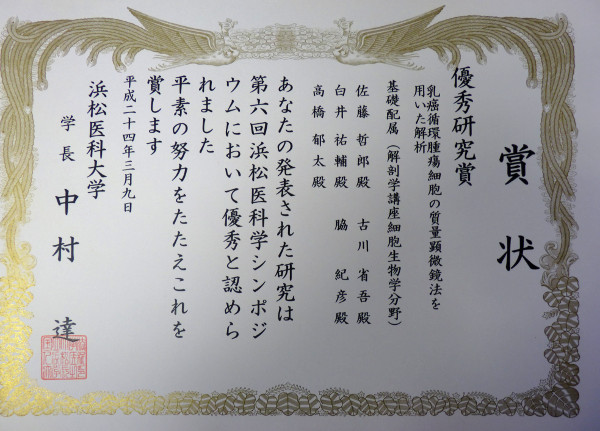 賞状
優秀研究賞
乳癌循環腫瘍細胞の質量顕微鏡法を
用いた解析
基礎配属（解剖学講座細胞生物学分野）
佐藤 哲郎殿 古川 省吾殿
白井 祐輔殿 脇 紀彦殿
高橋 郁太殿
あなたの発表された研究は
第六回浜松医科学シンポジ
ウムにおいて優秀と認めら
れました
平素の努力をたたえこれを
賞します
平成二十四年三月九日
浜松医科大学
学長 中村 達